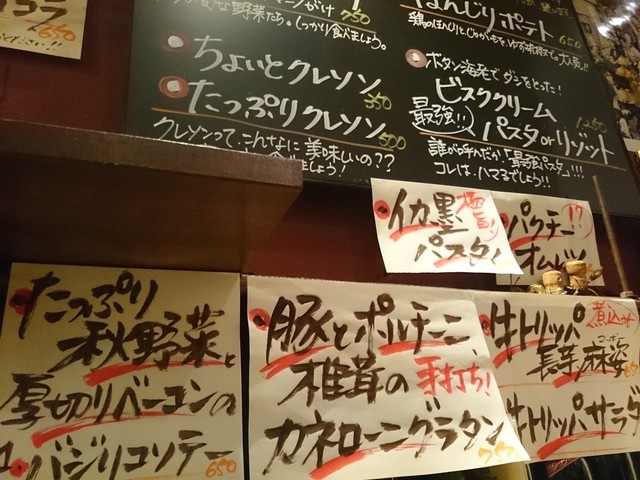 ださい!!
650
な野菜たち。しっかり食べましょう。
750
ちょいとクレソン
350
たっぷりクレソン
500
クレソンって、こんなに美味しいの??
ましょう!
ぼんじりポテト
650
ボタン海老でダシをとった!
ビスククリーム
1,250
最強!!
パスタorリゾット
誰が呼んだか「最強パスタ」!!!
コレは、ハマるでしょう!!
イカ墨
極旨!
パスタ!
パクチー
!?
オムレツ
たっぷり
秋野菜と
厚切りベーコンの
バジリコソテー
650
豚とポルチーニ、
椎茸の
手打ち!
カネローニグラタン
750
牛トリッパ
煮込み
マーボー
長芋麻婆
650
牛トリッパサラダ